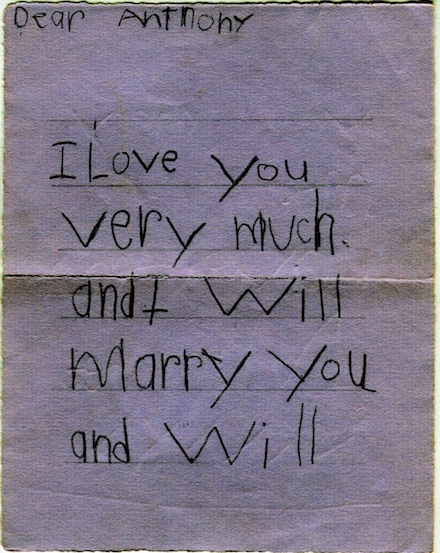 Dear Anthony
I Love you
very much.
and I Will
Marry you
and Will